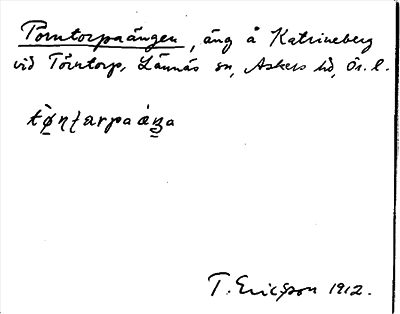 Torntorpaängen, äng å Katrineberg
vid Törntorp, Lännäs sn, Askers hd, Ör. l.
T. Ericsson 1912.